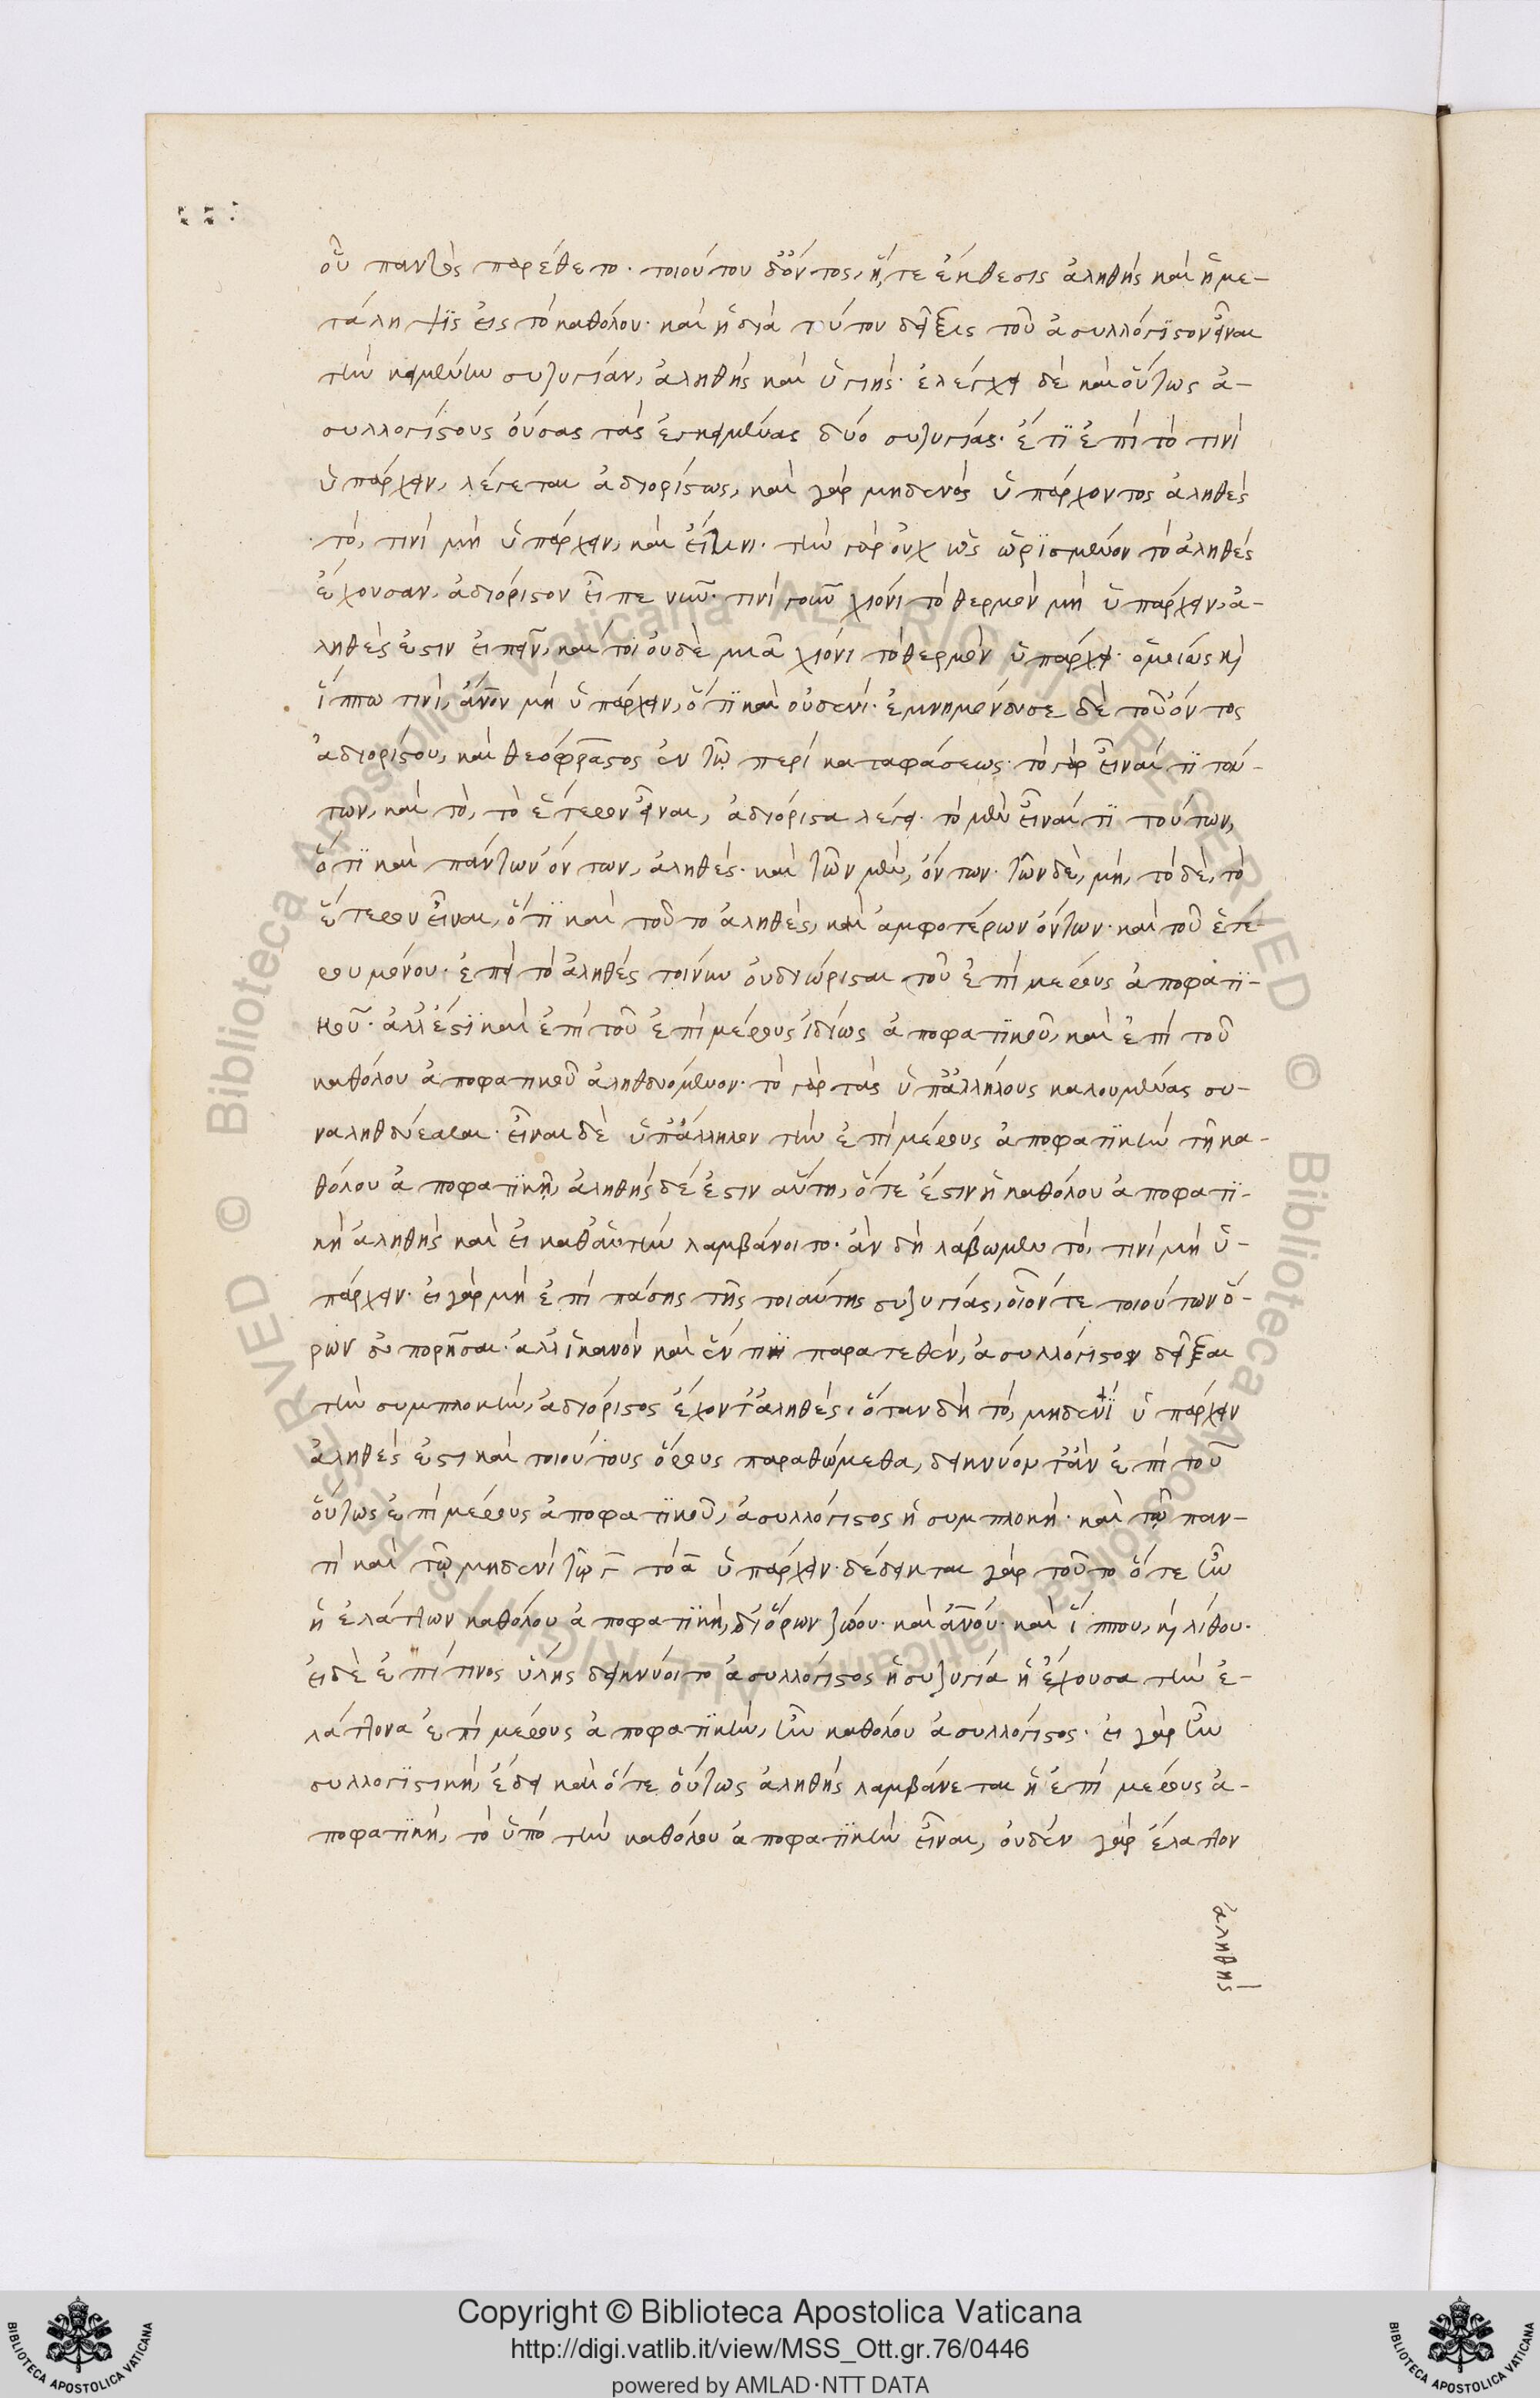 οὗ παντὸς παρέθετο· τοιούτου δ' ὄντος, ἥ, τε ἔκθεσις ἀληθὴς καὶ ἡ με-
τάληψις εἰς τὸ καθόλου· καὶ ἡ διὰ τούτου δεῖξις τοῦ ἀσυλλόγιστον εἶναι
τὴν κειμένην συζυγίαν, ἀληθὴς καὶ ὑγιής· ἐλέγχει δὲ καὶ οὕτως ἀ-
συλλογίστους οὔσας τὰς ἐκκειμένας δύο συζυγίας· ἔτι ἐπὶ τὸ τινὶ
ὑπάρχειν, λέγεται ἀδιορίστως, καὶ γὰρ μηδενὸς ὑπάρχοντος ἀληθὲς
τὸ, τινὶ μὴ ὑπάρχειν, καὶ εἴ τινι· τὴν γὰρ οὐχ ὡς ὡρισμένον τὸ ἀληθὲς
ἔχουσαν, ἀδιόριστον εἶπε νῦν· τινὶ γοῦν χιόνι τὸ θερμὸν μὴ ὑπάρχειν, ἀ-
ληθές ἐστιν εἰπεῖν, καί τοι οὐδὲ μιᾷ χιόνι τὸ θερμὸν ὑπάρχει· ὁμοίως κὶ
ἵππω τινὶ, ἄνον μὴ ὑπάρχειν, ὅτι καὶ οὐδενί· ἐμνημόνευσε δὲ τοῦ ὄντος
ἀδιορίστου, καὶ θεόφραστος ἐν τῶ περὶ καταφάσεως· τὸ γὰρ εἶναί τι τού-
των, καὶ τὸ, τὸ ἕτερον εἶναι, ἀδιόριστα λέγει· τὸ μὲν εἶναί τι τούτων,
ὅτι καὶ πάντων ὄντων, ἀληθές· καὶ τῶν μὲν, ὄντων· τῶν δὲ, μή, τὸ δὲ, τὸ
ἕτερον εἶναι, ὅτι καὶ τοῦτο ἀληθὲς, καὶ ἀμφοτέρων ὄντων· καὶ τοῦ ἑτέ-
ρου μόνου· ἐπεὶ τὸ ἀληθὲς τοίνυν οὐ διώρισται τοῦ ἐπὶ μέρους ἀποφατι-
κοῦ· ἀλλ' ἔστι καὶ ἐπὶ τοῦ ἐπὶ μέρους ἰδίως ἀποφατικοῦ, καὶ ἐπὶ τοῦ
καθόλου ἀποφατικοῦ ἀληθευόμενον· τὸ γὰρ τὰς ὑπ' ἀλλήλους καλουμένας συ-
ναληθεύεσθαι· εἶναι δὲ ὑπάλληλον τὴν ἐπὶ μέρους ἀποφατικὴν τῆ κα-
θόλου ἀποφατικῆ, ἀληθὴς δέ ἐστιν αὕτη, ὅτε ἐστὶν ἡ καθόλου ἀποφατι-
κὴ ἀληθὴς καὶ εἰ καθ' αὑτὴν λαμβάνοιτο· ἂν δὴ λάβωμεν τὸ, τινὶ μὴ ὑ-
πάρχειν· εἰ γὰρ μὴ ἐπὶ πάσης τῆς τοιαύτης συζυγίας, οἷόν τε τοιούτων ὅ-
ρων εὐπορῆσαι· ἀλλ' ἱκανὸν καὶ ἕν τι παρατεθὲν, ἀσυλλόγιστον δεῖξαι
τὴν συμπλοκὴν, ἀδιόριστος ἔχοντ' ἀληθές, ὅταν δὴ τὸ, μηδενὶ ὑπάρχειν
ἀληθές ἐστι καὶ τοιούτους ὅρους παραθώμεθα, δεικνύοιτ' ἂν ἐπὶ τοῦ
οὕτως ἐπὶ μέρους ἀποφατικοῦ, ἀσυλλόγιστος ἡ συμπλοκή· καὶ τῶ παν-
τὶ καὶ τῶ μηδενὶ τῶ γ τὸ α ὑπάρχειν· δέδεικται γὰρ τοῦτο ὅτε ἦν
ἡ ἐλάττων καθόλου ἀποφατικὴ, δι' ὅρων ζώου· καὶ ἀνου· καὶ ἵππου, κὶ λίθου·
εἰ δὲ ἐπί τινος ὕλης δεικνύοιτο ἀσυλλόγιστος ἡ συζυγία ἡ ἔχουσα τὴν ἐ-
λάττονα ἐπὶ μέρους ἀποφατικὴν, ἦν καθόλου ἀσυλλόγιστος· εἰ γὰρ ἦν
συλλογιστικὴ, ἔδει καὶ ὅτε οὕτως ἀληθὴς λαμβάνεται ἡ ἐπὶ μέρους ἀ-
ποφατικὴ, τὸ ὑπὸ τὴν καθόλου ἀποφατικὴν εἶναι, οὐδὲν γὰρ ἔλαττον
ἀληθὴς
© Biblioteca Apostolica Vaticana ALL RIGHTS RESERVED
© Biblioteca Apostolica Vaticana ALL RIGHTS RESERVED
Copyright © Biblioteca Apostolica Vaticana
http://digi.vatlib.it/view/MSS_Ott.gr.76/0446
powered by AMLAD·NTT DATA
BIBLIOTECA APOSTOLICA VATICANA
BIBLIOTECA APOSTOLICA VATICANA